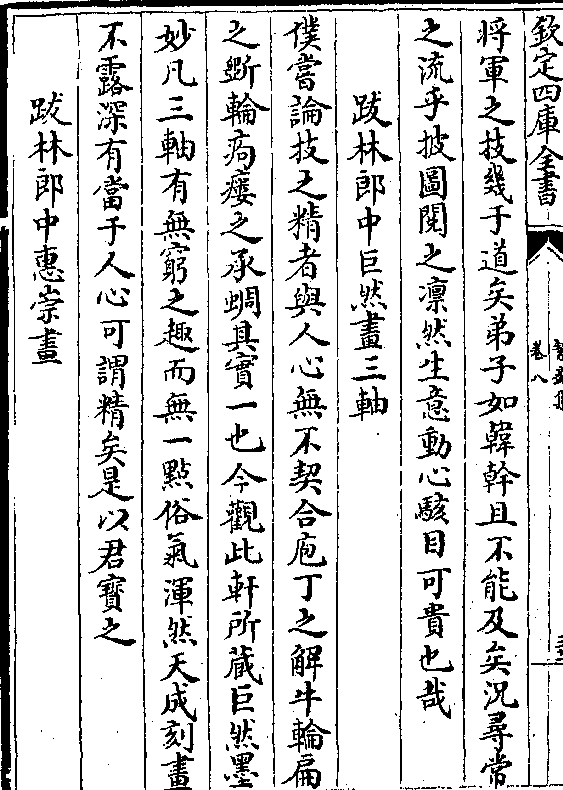 欽定四庫全書
卷八
將軍之技幾于道矣弟子如韓幹且不能及矣況尋常
之流乎披圖閱之凛然生意動心駭目可貴也哉
跋林郎中巨然畫三軸
僕嘗論技之精者與人心無不契合庖丁之解牛輪扁
之斲輪痀瘻之承蜩其實一也今觀此軒所藏巨然墨
妙凡三軸有無窮之趣而無一點俗氣渾然天成刻畫
不露深有當于人心可謂精矣是以君寶之
跋林郎中惠崇畫